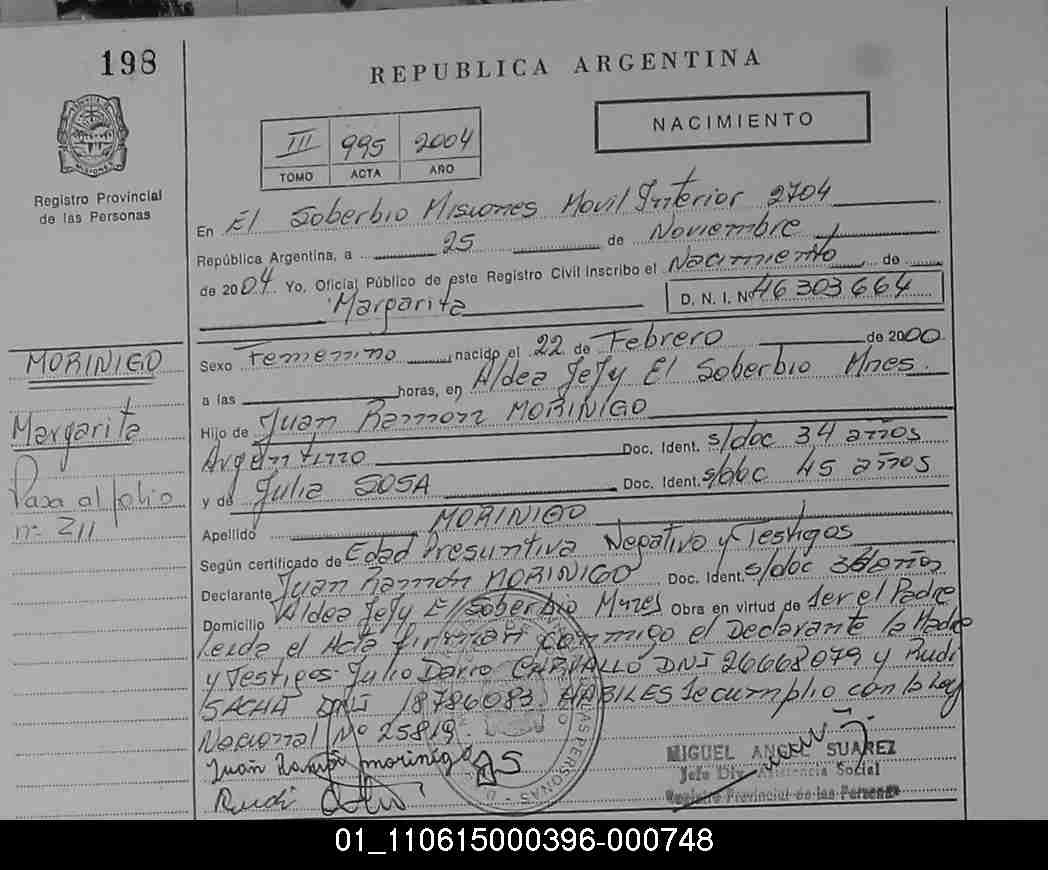 198
REPUBLICA ARGENTINA
NACIMIENTO
III 995 2004
TOMO ACTA AÑO
MISIONES
Registro Provincial
de las Personas
En El Soberbio Misiones Movil Interior 2704
República Argentina, a 25 de Noviembre
de 2004 Yo, Oficial Público de este Registro Civil inscribo el Nacimiento de
Margarita D. N. I. Nº 46303664
Sexo Femenino, nacido el 22 de Febrero de 2000
a las horas, en Aldea JeJy El Soberbio Mnes.
Hijo de Juan Ramon MORINIGO
Argentino Doc. Ident. s/doc 34 años
y de Julia SOSA Doc. Ident. s/doc 45 años
Apellido MORINIGO
Según certificado de Edad Presuntiva Negativo y Testigos
Declarante Juan Ramón MORINIGO Doc. Ident. s/doc años
Domicilio Aldea JeJy El Soberbio Mnes Obra en virtud de ser el Padre
leida el Acta firman conmigo el Declarante la Madre
y Testigos Julio Dario CARVALLO DNI 26668079 y Rudi
SACHA DNI 18786083 HABILES se cumplio con la Ley
Nacional Nº 25819.
MORINIGO
Margarita
Pasa al folio
nº 211
Juan Ramon morinigo
Rudi
MIGUEL ANGEL SUAREZ
Jefe Div. Asistencia Social
Registro Provincial de las Personas
01_110615000396-000748